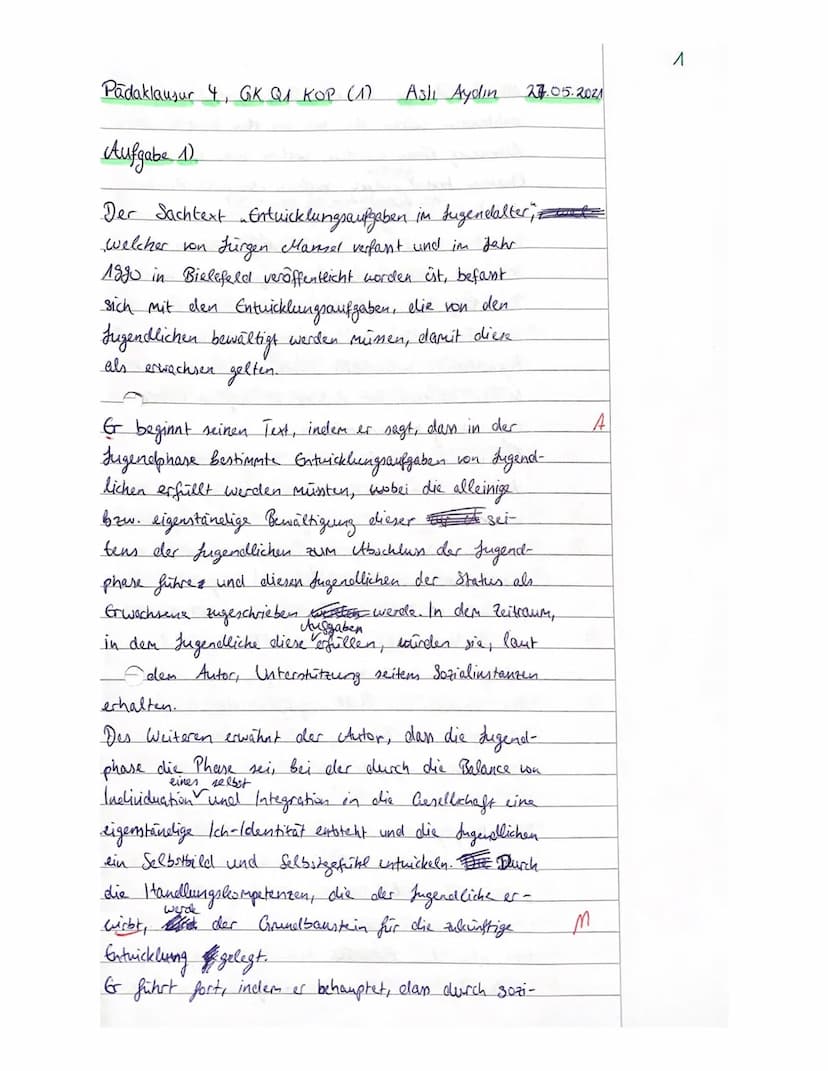 1
Pädaklausur 4, GK Q1 KOP (1) Aslı Aydın 27.05.2021
Aufgabe 1)
Der Sachtext „Entwicklungsaufgaben im Jugendalter",
welcher von Jürgen Mansel verfasst und im Jahr
1990 in Bielefeld veröffentlicht worden ist, befasst
sich mit den Entwicklungsaufgaben, die von den
Jugendlichen bewältigt werden müssen, damit diese
als erwachsen gelten.
Er beginnt seinen Text, indem er sagt, dass in der A
Jugendphase bestimmte Entwicklungsaufgaben von Jugend-
lichen erfüllt werden müssten, wobei die alleinige
bzw. eigenständige Bewältigung dieser sei-
tens der Jugendlichen zum Abschluss der Jugend-
phase führe und diesen Jugendlichen der Status als
Erwachsene zugeschrieben werde. In dem Zeitraum,
in dem Jugendliche diese Aufgaben erfüllen, würden sie, laut
dem Autor, Unterstützung seitens Sozialinstanzen
erhalten.
Des Weiteren erwähnt der Autor, dass die Jugend-
phase die Phase sei, bei der durch die Balance von
Individuation einen selbst und Integration in die Gesellschaft eine
eigenständige Ich-Identität entsteht und die Jugendlichen
ein Selbstbild und Selbstgefühl entwickeln. Durch
die Handlungskompetenzen, die der Jugendliche er-
wirbt, werde der Grundbaustein für die zukünftige M
Entwicklung gelegt.
Er führt fort, indem er behauptet, dass durch sozi-